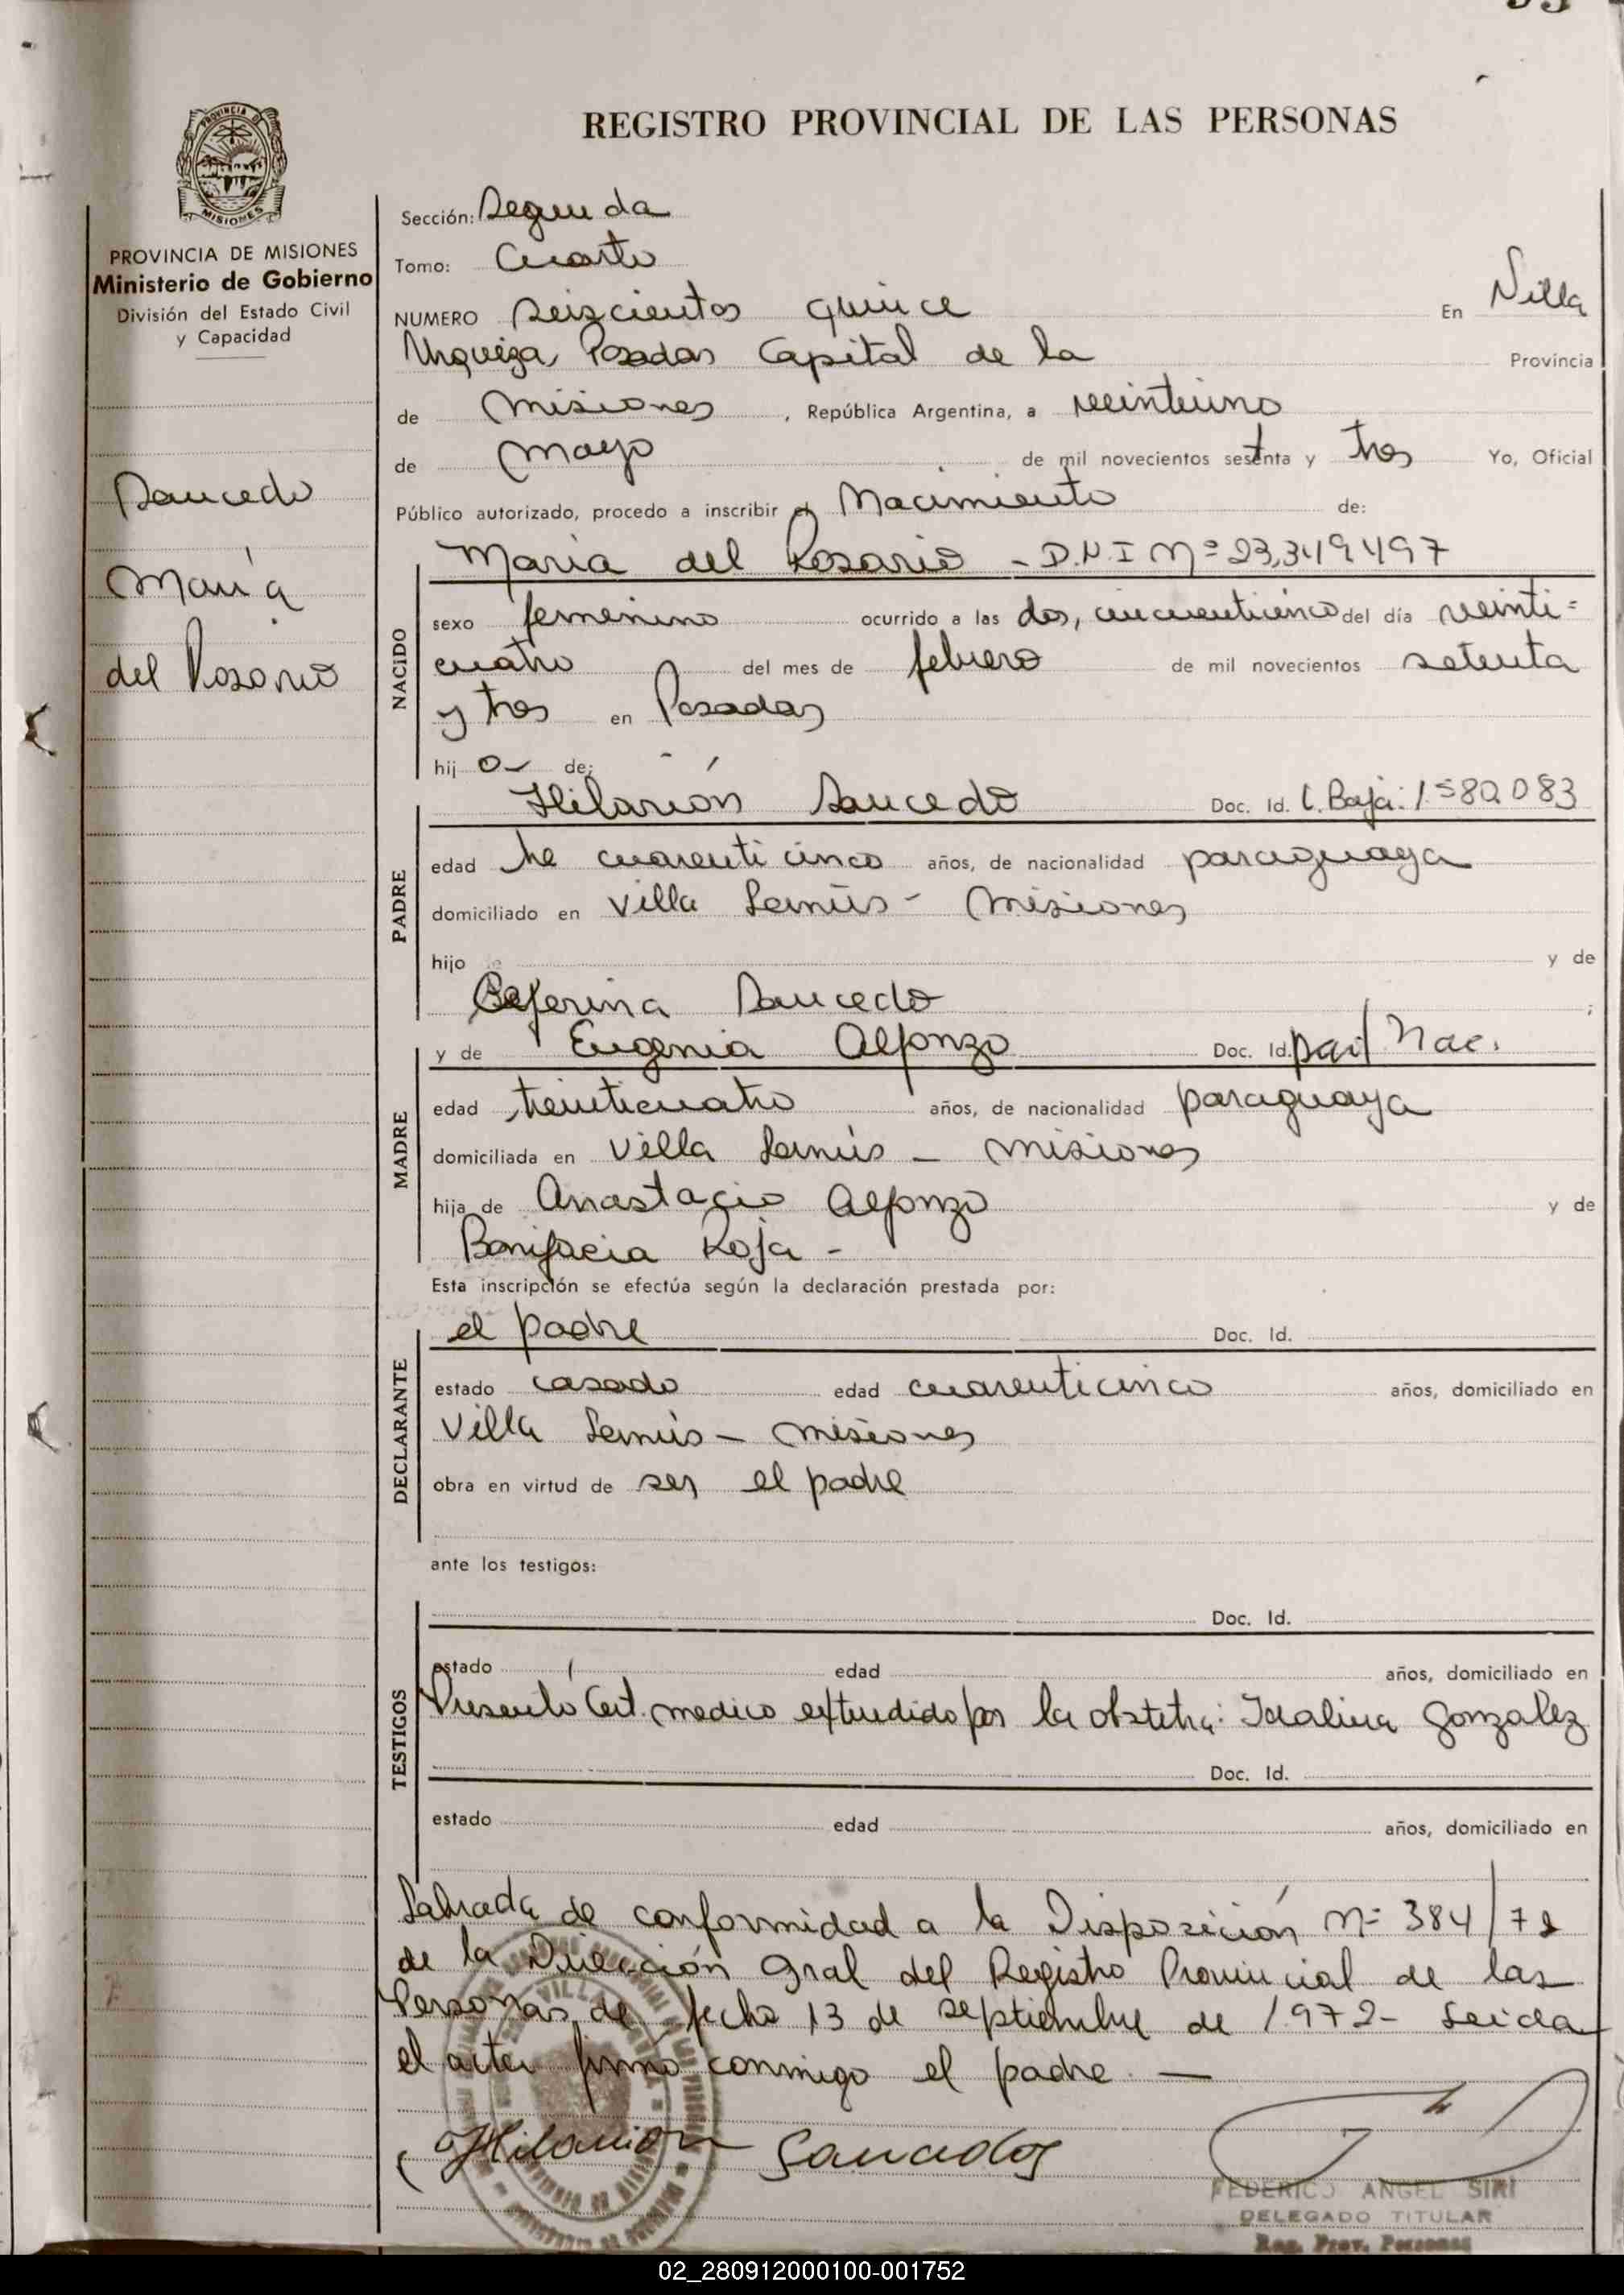 REGISTRO PROVINCIAL DE LAS PERSONAS
PROVINCIA DE MISIONES
MISIONES
PROVINCIA DE MISIONES
Ministerio de Gobierno
División del Estado Civil
y Capacidad
Saucedo
María
del Rosario
Sección: Segunda
Tomo: Cuarto
NUMERO seiscientos quince En Villa
Urquiza, Posadas Capital de la Provincia
de Misiones, República Argentina, a veintiuno
de mayo de mil novecientos sesenta y tres Yo, Oficial
Público autorizado, procedo a inscribir el Nacimiento de:
María del Rosario - D.N.I Nº 23,349497
NACIDO
sexo femenino ocurrido a las dos, cincuenticinco del día veinti=
cuatro del mes de febrero de mil novecientos setenta
y tres en Posadas
hij a de:
Hilarión Saucedo Doc. Id. C. Baja: 1582083
PADRE
edad cuarenticinco años, de nacionalidad paraguaya
domiciliado en Villa Lanús - Misiones
hijo y de
Ceferina Saucedo ;
y de Eugenia Alfonzo Doc. Id. part Nac.
MADRE
edad treinticuatro años, de nacionalidad paraguaya
domiciliada en Villa Lanús - Misiones
hija de Anastacio Alfonzo y de
Bonifacia Roja -
Esta inscripción se efectúa según la declaración prestada por:
el padre Doc. Id.
DECLARANTE
estado casado edad cuarenticinco años, domiciliado en
Villa Lanús - Misiones
obra en virtud de ser el padre
ante los testigos:
Doc. Id.
TESTIGOS
estado edad años, domiciliado en
Presentó Cert. medico extendido por la obstetra: Idalina Gonzalez
Doc. Id.
estado edad años, domiciliado en
Labrada de conformidad a la Disposición Nº 384/72
de la Dirección Gral del Registro Provincial de las
Personas de fecha 13 de septiembre de 1972- Leida
el acta firmó conmigo el padre. —
Hilarion Saucedo
FEDERICO ANGEL SIRI
DELEGADO TITULAR
Reg. Prov. Personas
02_280912000100-001752